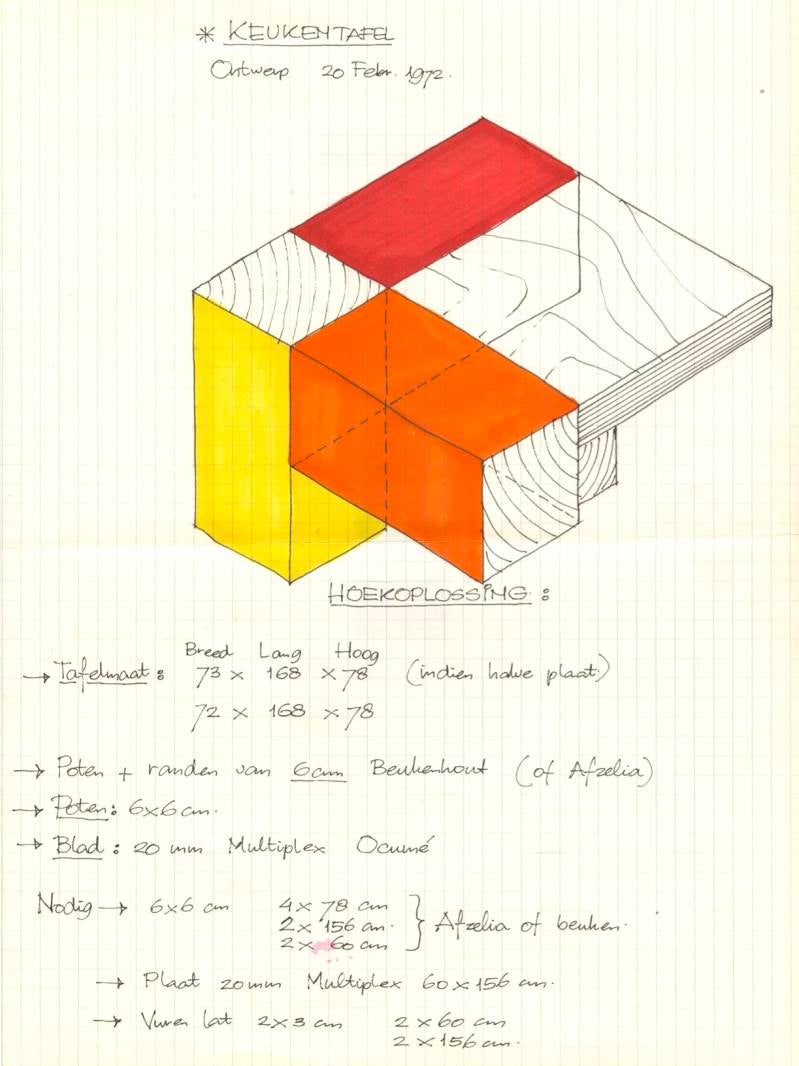 * KEUKENTAFEL
Ontwerp 20 Febr. 1972.
HOEKOPLOSSING :
Breed Lang Hoog
→ Tafelmaat : 73 x 168 x 78 (indien halve plaat)
72 x 168 x 78
→ Poten + randen van 6cm Beukenhout (of Afzelia)
→ Poten : 6x6 cm.
→ Blad : 20 mm Multiplex Ocumé
Nodig → 6x6 cm 4 x 78 cm
2 x 156 cm.
2 x 60 cm } Afzelia of beuken.
→ Plaat 20mm Multiplex 60 x 156 cm.
→ Vuren lat 2x3 cm 2 x 60 cm
2 x 156 cm.